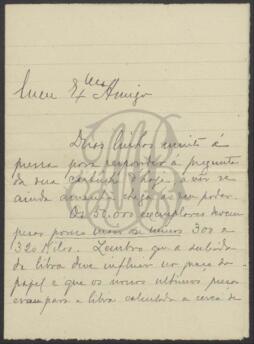 Meu Exmo Amigo
Duas linhas muito á
pressa para responder á pregunta
da sua cartinha d'hoje a vêr se
ainda amanhã chega ao seu poder.
Os 50.000 exemplares devem
pesar pouco mais ou menos 300 a
320 kilos. Lembro que a subida
da libra deve influir no preço do
papel e que os nossos ultimos preços
eram para a libra calculada a cerca de